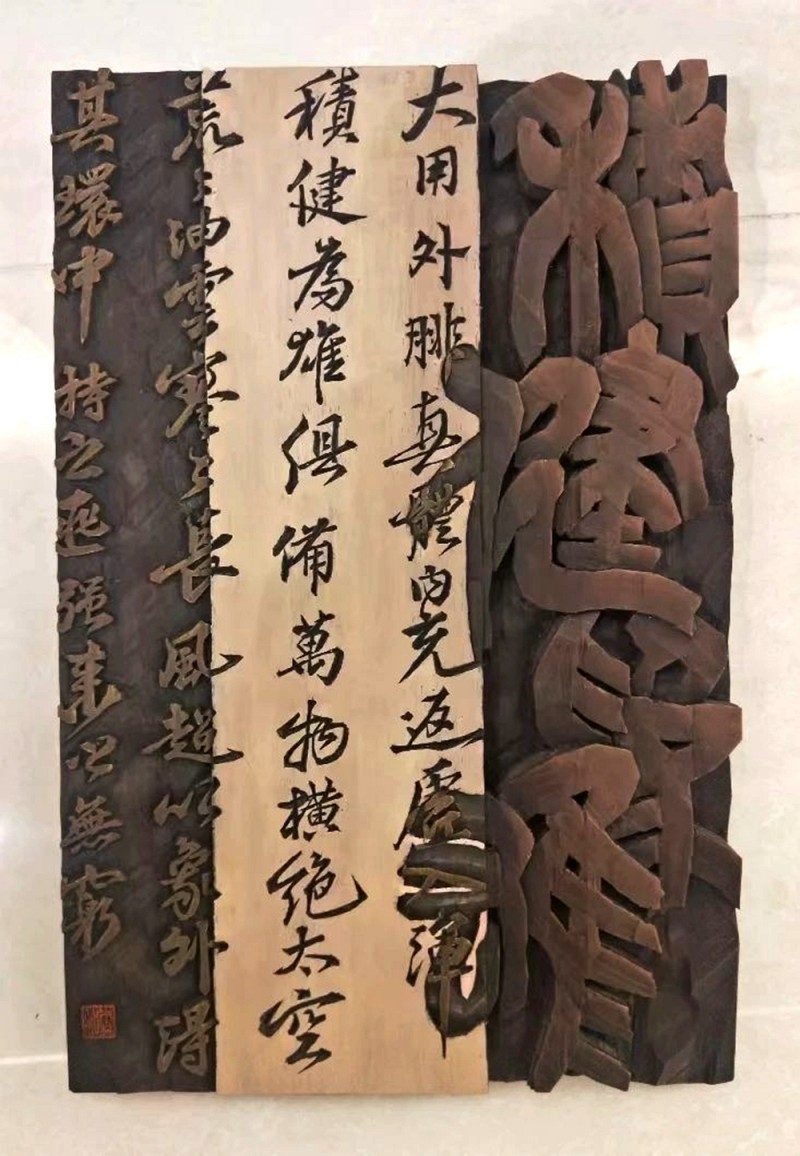 積健
大用外腓真體内充返虛入渾
積健為雄俱備萬物橫絕太空
荒〻油雲寥〻長風超以象外得
其環中持之匪强来之無窮